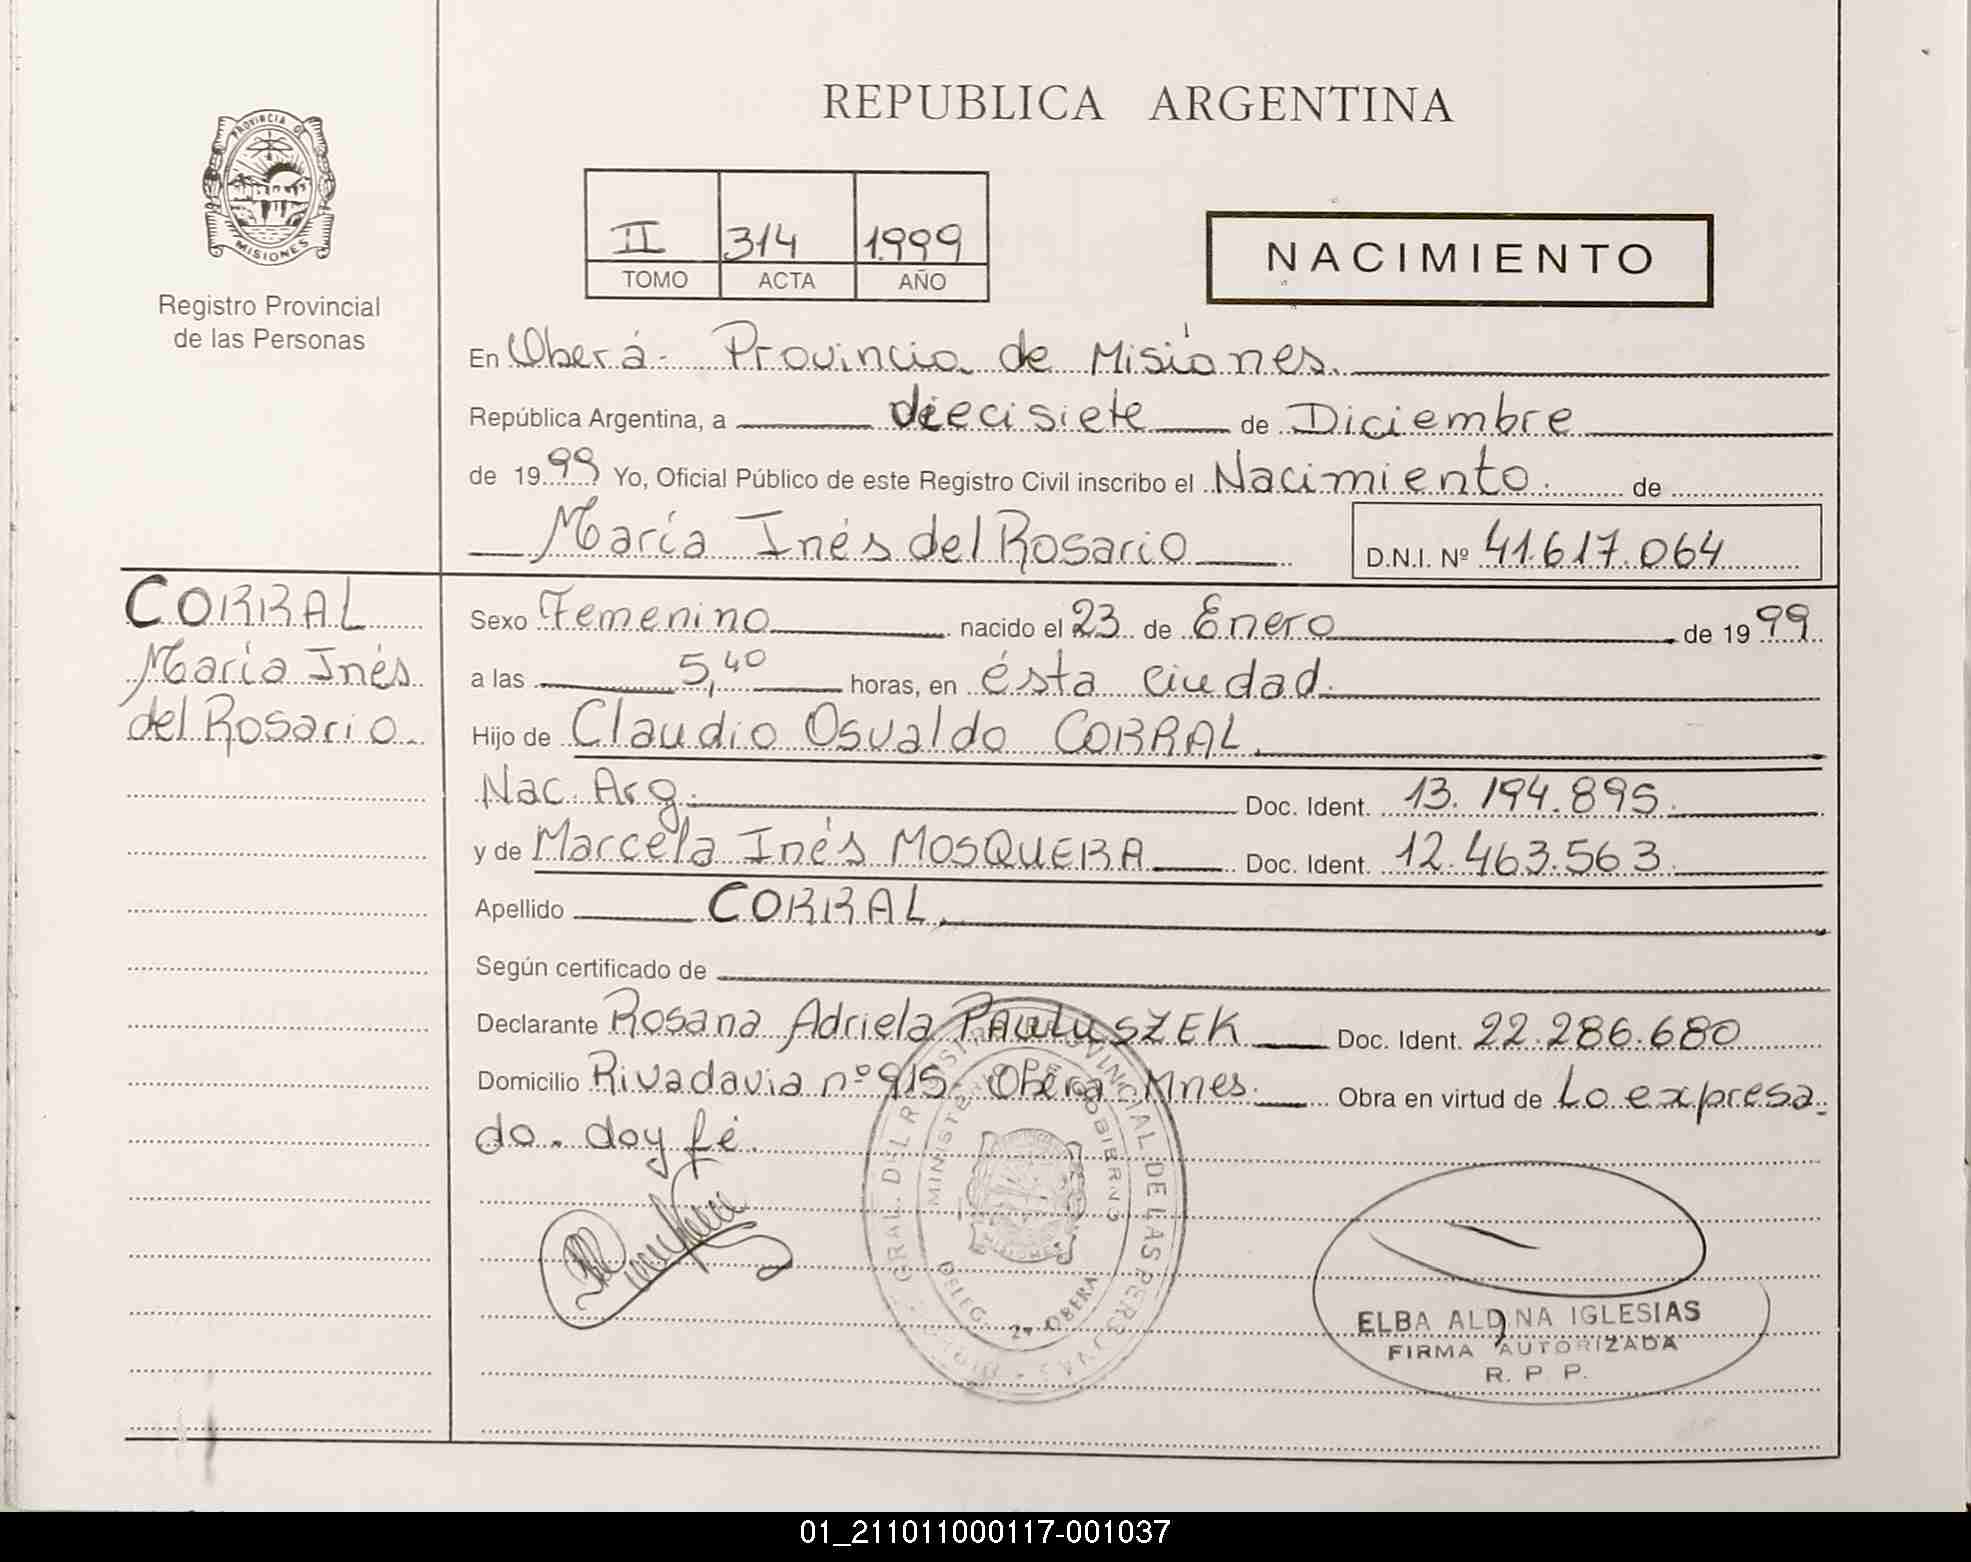 REPUBLICA ARGENTINA
PROVINCIA DE
MISIONES
Registro Provincial
de las Personas
II 314 1999
TOMO ACTA AÑO
NACIMIENTO
En Oberá - Provincia de Misiones.
República Argentina, a diecisiete de Diciembre
de 1999 Yo, Oficial Público de este Registro Civil inscribo el Nacimiento de
María Inés del Rosario D.N.I. Nº 41.617.064
CORRAL
María Inés
del Rosario.
Sexo Femenino nacido el 23 de Enero de 1999
a las 5,40 horas, en ésta ciudad.
Hijo de Claudio Osvaldo CORRAL
Nac. Arg. Doc. Ident. 13.194.895.
y de Marcela Inés MOSQUERA Doc. Ident. 12.463.563.
Apellido CORRAL
Según certificado de
Declarante Rosana Adriela PAWLUSZEK Doc. Ident. 22.286.680
Domicilio Rivadavia nº 915- Oberá Mnes. Obra en virtud de Lo expresa-
do. doy fé.
GRAL. DEL R PROVINCIAL DE LAS PERSONAS
MINISTERIO DE GOBIERNO
MISIONES
DELEG. OBERA
ELBA ALDINA IGLESIAS
FIRMA AUTORIZADA
R. P. P.
01_211011000117-001037